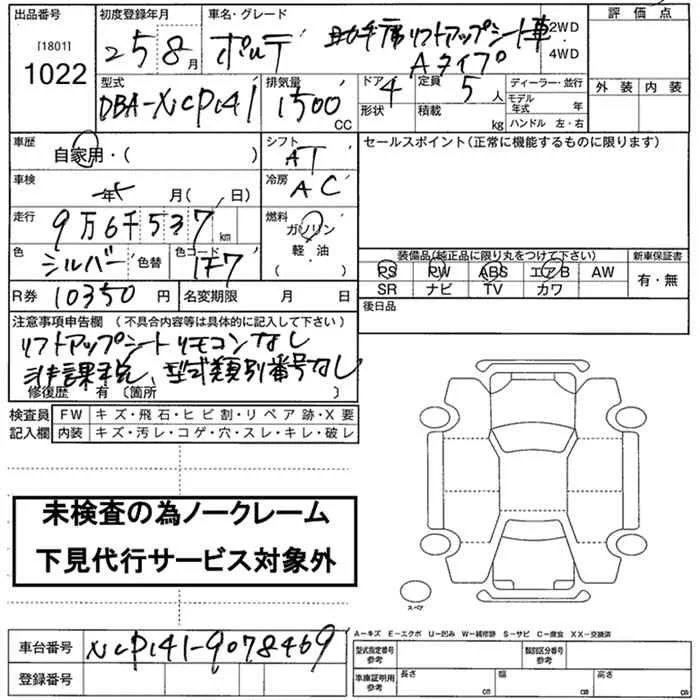 出品番号 初度登録年月 車名・グレード 評価点
[1801]
1022
25 8月 ポルテ 助手席リフトアップシート車
Aタイプ
2WD
・
4WD
外装 内装
型式 排気量 ドア 定員 ディーラー・並行
DBA-NCP141 1500 CC 4 5人
形状 積載 kg
モデル年式 年
ハンドル 左・右
車歴 シフト セールスポイント(正常に機能するものに限ります)
自家用・( ) AT
車検 冷房
年 月( 日) AC
走行 燃料
9万6千537km ガソリン
軽・油
( )
色 色替 色コード
シルバー 1F7
装備品(純正品に限り丸をつけて下さい) 新車保証書
PS PW ABS エアB AW
SR ナビ TV カワ
有・無
R券 10350円 名変期限 月 日
後日品
注意事項申告欄 (不具合内容等は具体的に記入して下さい)
リフトアップシートリモコンなし
非課税、型式類別番号なし
修復歴 有 〔箇所 )
検査員 FW キズ・飛石・ヒビ割・リペア跡・X要
記入欄 内装 キズ・汚レ・コゲ・穴・スレ・キレ・破レ
未検査の為ノークレーム
下見代行サービス対象外
スペア
A-キズ E-エクボ U-凹み W-補修跡 S-サビ C-腐食 XX-交換済
車台番号 NCP141-9078469
登録番号
型式指定番号 参考 類別区分番号 参考
車庫証明用 参考 長さ cm 幅 cm 高さ cm